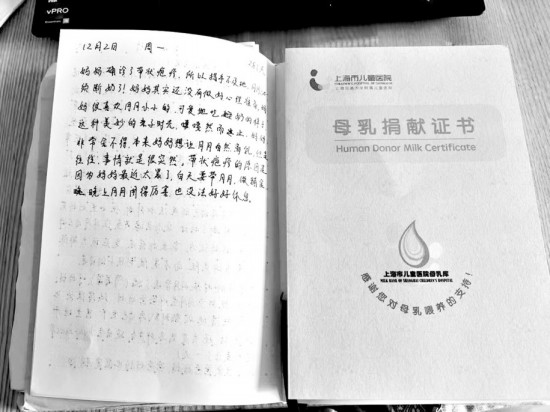 12月2日 周一
妈妈确诊了带状疱疹，所以措手不及地，
须断奶了！妈妈其实还没有做好心理准备，妈
妈很喜欢月月小小的、可爱地吃奶的样子
这种美妙的亲子时光，嘎然而止，妈妈
非常舍不得。本来妈妈想让月月自然离乳，
往往，事情就是很突然，带状疱疹的原因是
因为妈妈最近太累了，白天要带月月，做辅食
晚上月月闹得厉害，也没法好好休息。
上海市儿童医院
母乳捐献证书
Human Donor Milk Certificate
上海市儿童医院母乳库
MILK BANK OF SHANGHAI CHILDREN'S HOSPITAL
感谢您对母乳喂养的支持！
vPRO